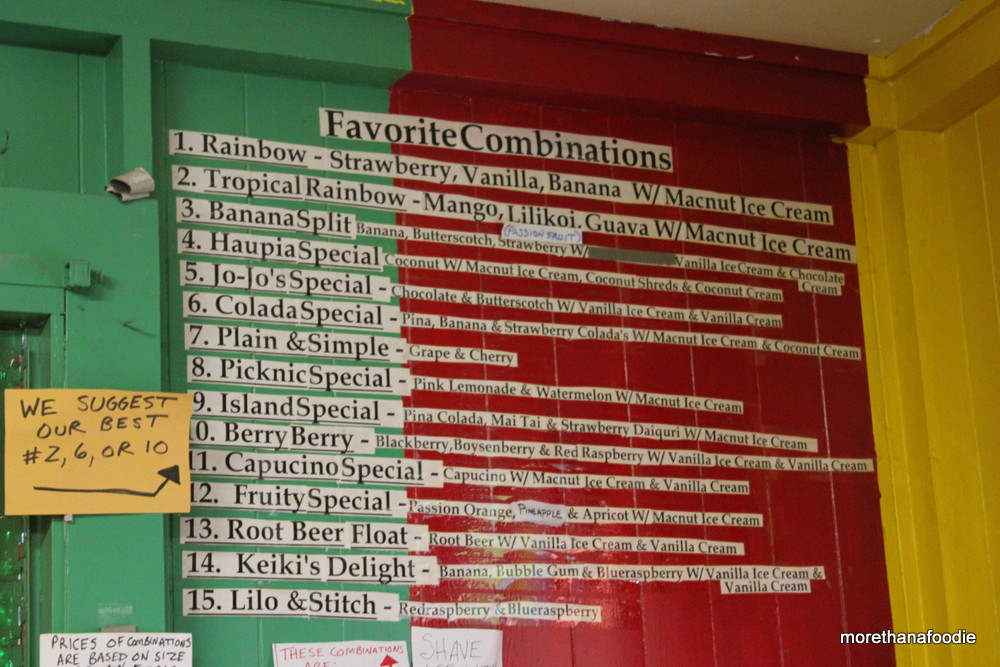 FavoriteCombinations
1. Rainbow - Strawberry, Vanilla, Banana W/ Macnut Ice Cream
2. Tropical Rainbow - Mango, Lilikoi, Guava W/ Macnut Ice Cream
(PASSION FRUIT)
3. BananaSplit Banana, Butterscotch, Strawberry W/ Vanilla Ice Cream & Chocolate
Cream
4. HaupiaSpecial Coconut W/ Macnut Ice Cream, Coconut Shreds & Coconut Cream
5. Jo-Jo'sSpecial - Chocolate & Butterscotch W/ Vanilla Ice Cream & Vanilla Cream
6. ColadaSpecial - Pina, Banana & Strawberry Colada's W/ Macnut Ice Cream & Coconut Cream
7. Plain &Simple - Grape & Cherry
8. PicknicSpecial - Pink Lemonade & Watermelon W/ Macnut Ice Cream
9. IslandSpecial - Pina Colada, Mai Tai & Strawberry Daiquri W/ Macnut Ice Cream
10. BerryBerry - Blackberry, Boysenberry & Red Raspberry W/ Vanilla Ice Cream & Vanilla Cream
11. CapucinoSpecial - Capucino W/ Macnut Ice Cream & Vanilla Cream
12. FruitySpecial -Passion Orange, PINEAPPLE & Apricot W/ Macnut Ice Cream
13. Root Beer Float - Root Beer W/ Vanilla Ice Cream & Vanilla Cream
14. Keiki's Delight - Banana, Bubble Gum & Blueraspberry W/ Vanilla Ice Cream &
Vanilla Cream
15. Lilo &Stitch - Redraspberry &Blueraspberry
WE SUGGEST
OUR BEST
#2, 6, OR 10
PRICES OF COMBINATIONS
ARE BASED ON SIZE
THESE COMBINATIONS
ARE:
SHAVE
morethanafoodie